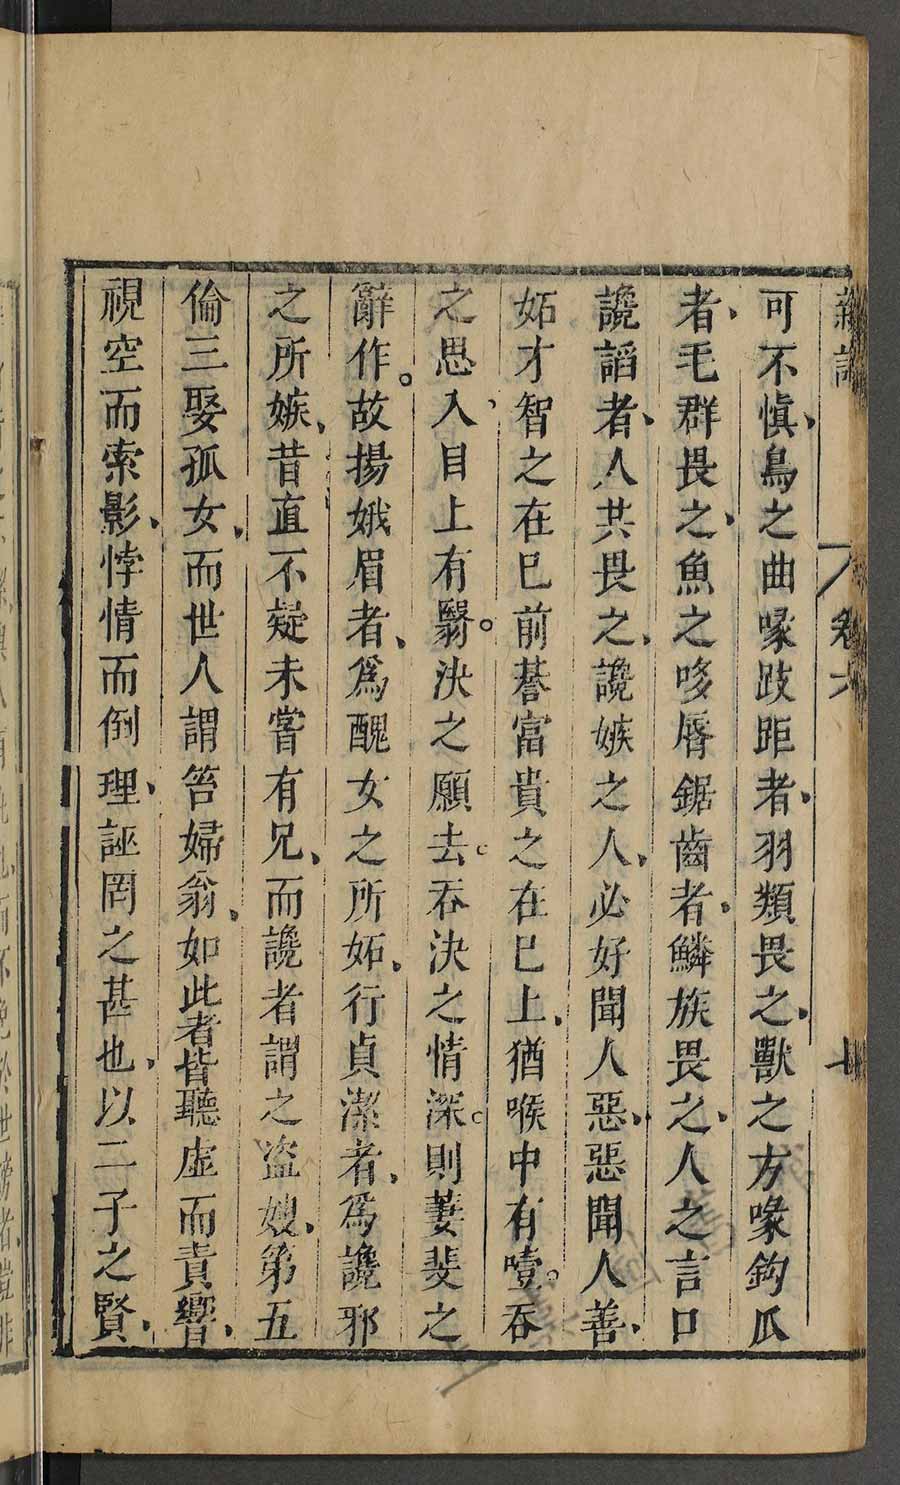 新論 卷六 七
可不慎、鳥之曲喙跂距者、羽類畏之、獸之方喙鈎爪
者、毛群畏之、魚之哆脣鋸齒者、鱗族畏之、人之言口
讒謟者、人共畏之、讒嫉之人、必好聞人惡、惡聞人善、
妬才智之在巳前、䓁富貴之在巳上、猶喉中有噎。吞
之思入、目上有翳。決之願去。吞決之情深。則萋斐之
辭作。故揚娥眉者、爲醜女之所妬、行貞潔者、爲讒邪
之所嫉、昔直不疑未嘗有兄、而讒者謂之盗嫂、第五
倫三娶孤女、而世人謂笞婦翁、如此者皆聽虛而責響、
視空而索影、悖情而倒理、誣罔之甚也、以二子之賢、